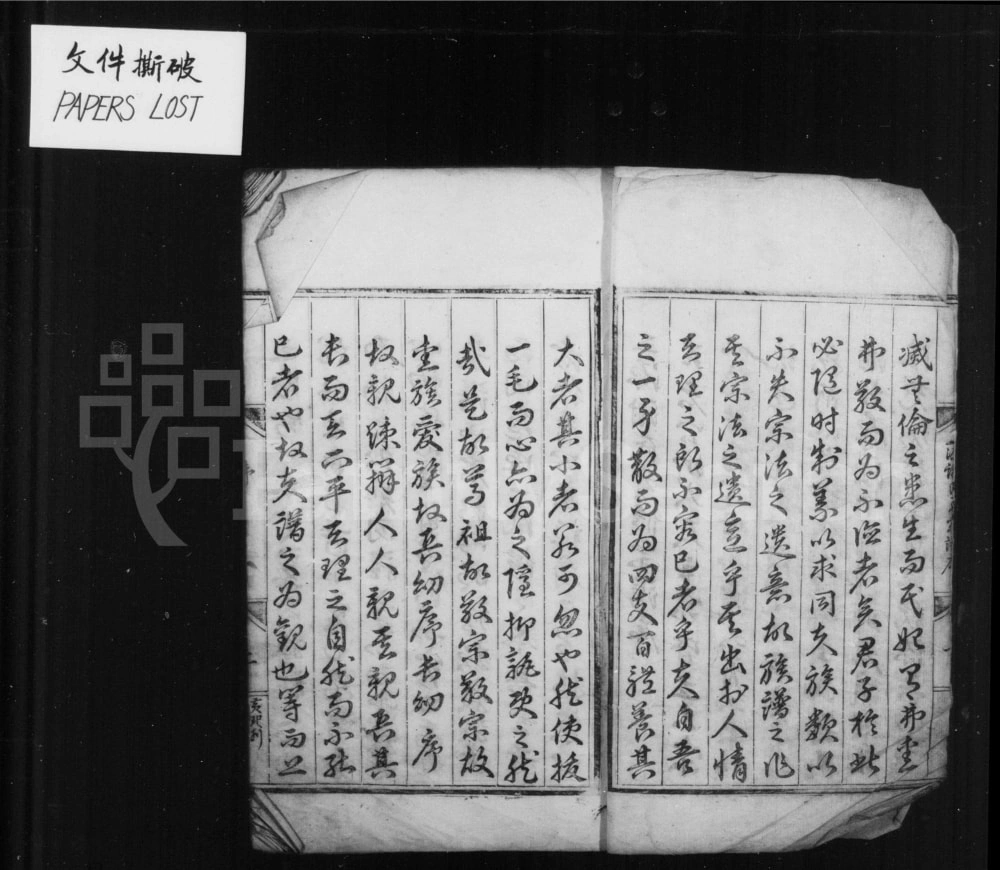 文件撕破
PAPERS LOST
滅其倫之患生而民始有弗愛
弗敬而為不恆者矣君子於此
必隨時制義以求同夫族類以
不失宗法之遺意故族譜之作
其宗法之遺意乎其出於人情
天理之所不容已者乎夫自吾
之一身散而為四支百體養其
大者其小者若可忽也然使拔
一毛而心亦為之隱抑孰使之然
哉是故尊祖故敬宗敬宗故
愛族愛族故長幼序長幼序
故親疎辨人人親其親長其
長而天下平天理之自然而不能
已者也故夫譜之為觀也等而上